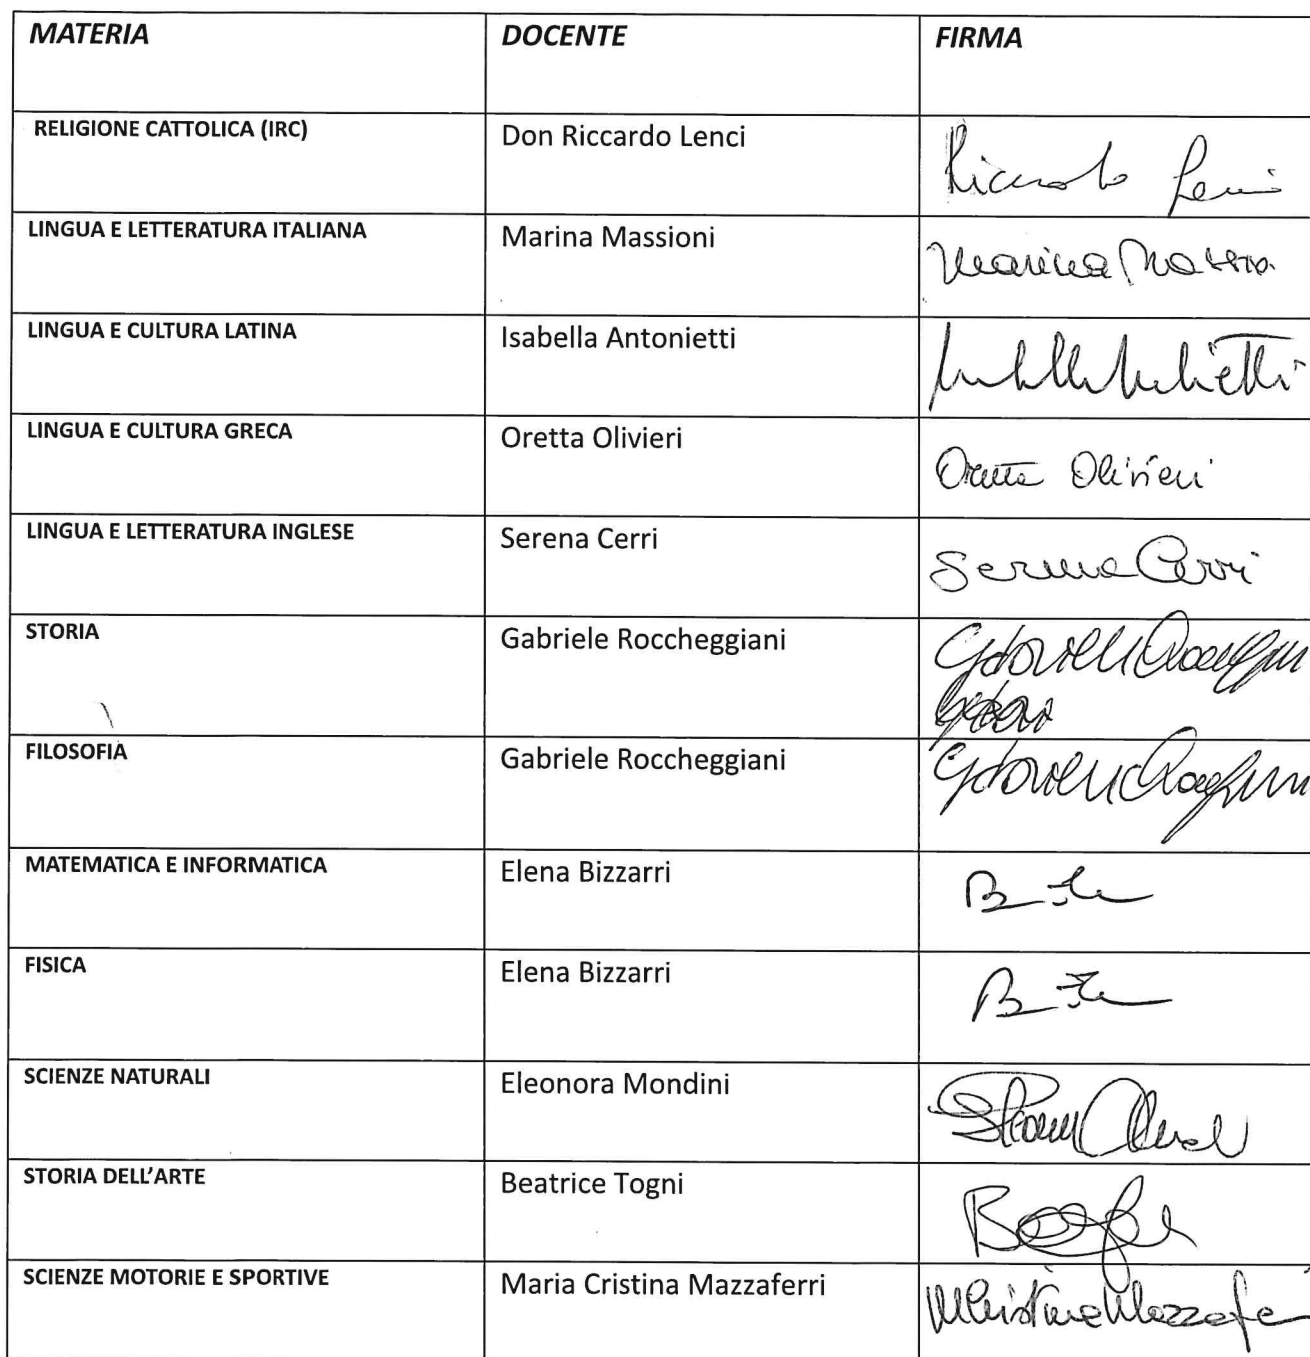 MATERIA DOCENTE FIRMA
RELIGIONE CATTOLICA (IRC) Don Riccardo Lenci Riccardo Lenci
LINGUA E LETTERATURA ITALIANA Marina Massioni Marina
LINGUA E CULTURA LATINA Isabella Antonietti
LINGUA E CULTURA GRECA Oretta Olivieri Oretta Olivieri
LINGUA E LETTERATURA INGLESE Serena Cerri Serena Cerri
STORIA Gabriele Roccheggiani
FILOSOFIA Gabriele Roccheggiani
MATEMATICA E INFORMATICA Elena Bizzarri
FISICA Elena Bizzarri
SCIENZE NATURALI Eleonora Mondini
STORIA DELL'ARTE Beatrice Togni
SCIENZE MOTORIE E SPORTIVE Maria Cristina Mazzaferri